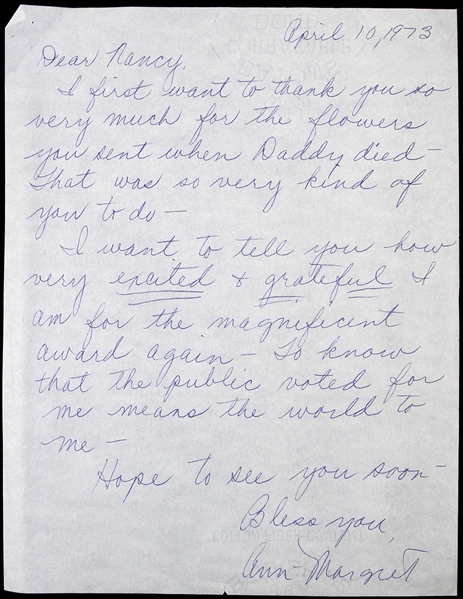 April 10, 1973
Dear Nancy,
I first want to thank you so
very much for the flowers
you sent when Daddy died—
That was so very kind of
you to do—
I want to tell you how
very excited & grateful I
am for the magnificent
award again— To know
that the public voted for
me means the world to
me—
Hope to see you soon—
Bless you,
Ann-Margret